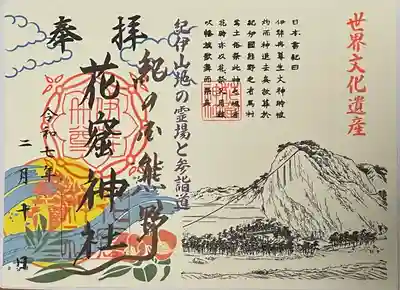 世界文化遺産
日本書紀曰
伊弉冉尊生火神時被
灼而神退去矣故葬於
紀伊國熊野之有馬村
焉土俗祭此神之魂者
花時亦以花祭又用鼓
吹幡旗歌舞而祭矣
紀伊山地の霊場と参詣道
奉拝
紀の国熊野
花窟神社
令和七年
二月十一日